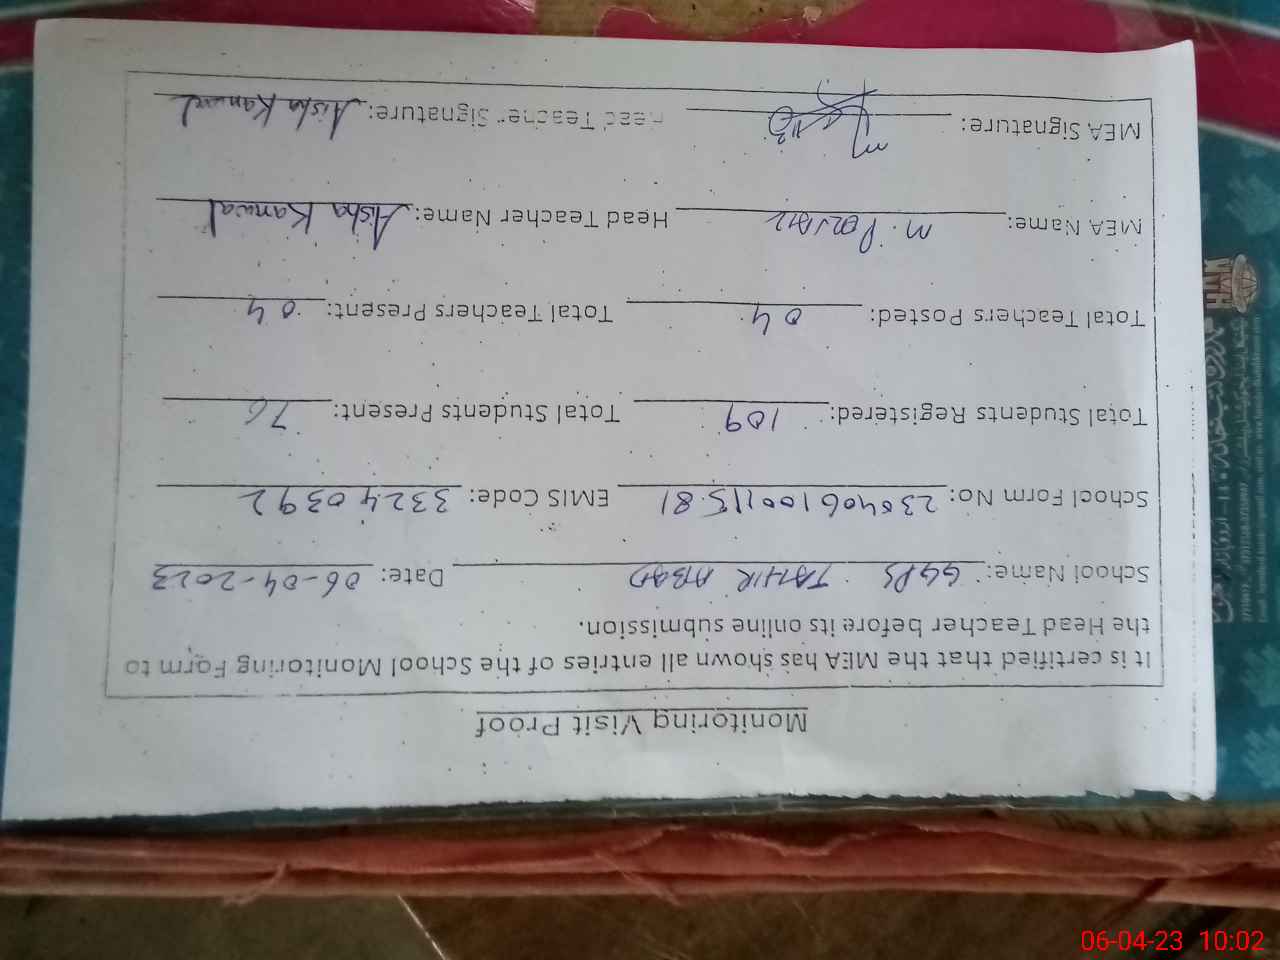 Monitoring Visit Proof
It is certified that the MEA has shown all entries of the School Monitoring Form to
the Head Teacher before its online submission.
School Name: GGPS TAHIR ABAD Date: 06-04-2023
School Form No: EMIS Code: 33240392
Total Students Registered: 109 Total Students Present: 76
Total Teachers Posted: 04 Total Teachers Present: 04
MEA Name: M. Head Teacher Name: Aisha Kanwal
MEA Signature: Head Teacher Signature: Aisha Kanwal
06-04-23 10:02